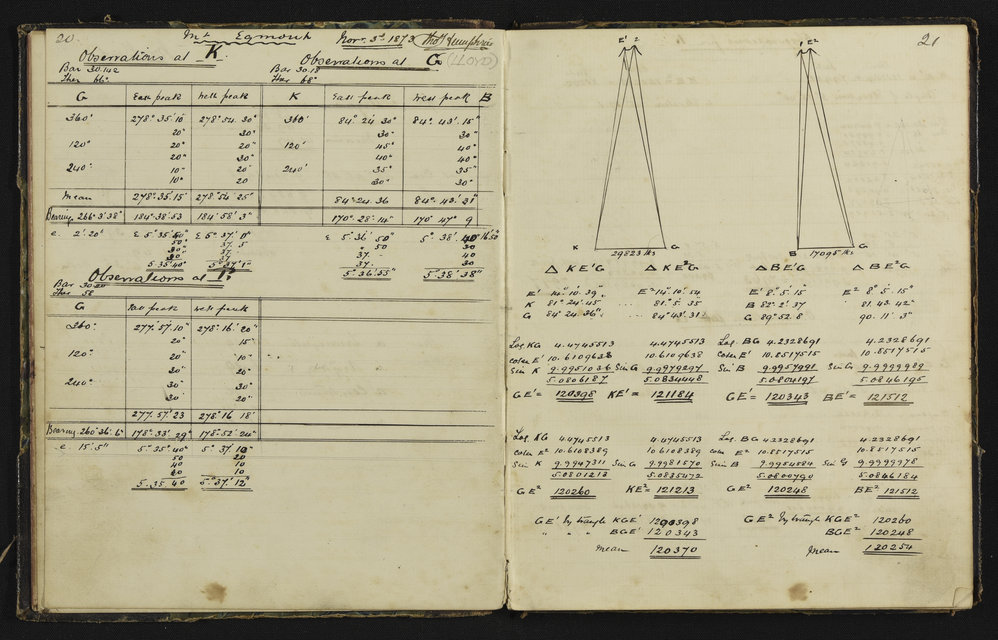 20. Mt Egmont Novr. 3rd 1873 Thos Humphries
Observations at K. Observations at G (LLOYD)
Bar 30.142 Bar 30.18
Ther 66° Ther 68°
G East peak West peak K East peak West peak B
360° 278°.35.10 278°54.30" 360° 84°.24 30" 84°.43'.15"
20" 30" 30" 30"
120° 20" 20" 120° 45" 40"
20" 30" 40" 40"
240° 10" 20" 240° 35" 35"
10" 20 30" 30"
Mean 278°.35'.15' 278°54'25" 84°.24.36 84°.43'.31"
Bearing 266°3'38" 184°.38'.53 184°.58'.3" 170°.28'.14" 170°47" 9
e. 2'.20" E 5°35'.50" E 5°.37'.0" E 5°.36'.50" 5°.38'.40" 16'50"
50" 37. 5 " 50 30
30" 37. 37. 40
30" 37. 37. 30
5.35'40" 5°37'1" 5°.36'.55" 5°.38'38"
Observations at B
Bar 30.20
Ther 58
G East peak West peak
360° 277°.57'.10" 278°.16'.20"
20" 15"
120° 20" 10"
20" 20"
240° 30" 30"
30" 20"
277.57'.23 278°16 18'
Bearing 260°36'.6" 178°.33'.29" 178°.52'.24"
e. 15'.5" 5°.35'.40" 5°.37'.10"
50 20
40 10
30 10
5.35 40 5°.37'.12"
21
E' 2 1 E2
K G B G
29823 lks 17095 lks
Δ KE'G Δ KE²G Δ BE'G Δ BE²G
E' 14°.10'.39" E² 14°.10'.54 E' 8°.5'.15" E² 8°.5'.15"
K 81°.24'.45 81°.5'.35 B 82°.2'.37 81.43.42"
G 84°24.36" 84°43'.31" G 89°52.8 90..11'.3"
Log KG 4.4745513 4.4745513 Log. BG 4.2328691 4.2328691
cosec E' 10.6109638 10.6109638 cosec E' 10.8517515 10.8517515
Sin K 9.9951036 Sin G 9.9979297 Sin B 9.9957991 Sin G 9.9999989
5.0806187 5.0834448 5.0804197 5.0846195
GE' = 120398 KE' = 121184 GE' = 120343 BE' = 121512
Log. KG 4.4745513 4.4745513 Log. BG 4.2328691 4.2328691
cosec E² 10.6108389 10.6108389 cosec E² 10.8517515 10.8517515
Sin K 9.9947311 Sin G 9.9981570 Sin B 9.9954584 Sin G 9.9999978
5.0801213 5.0835472 5.0800790 5.0846184
GE² 120260 KE² = 121213 GE² 120248 BE² 121512
GE' by triangle KGE' 120398 GE² by triangle KGE² 120260
" " " BGE' 120343 BGE² 120248
Mean 120370 Mean 120254